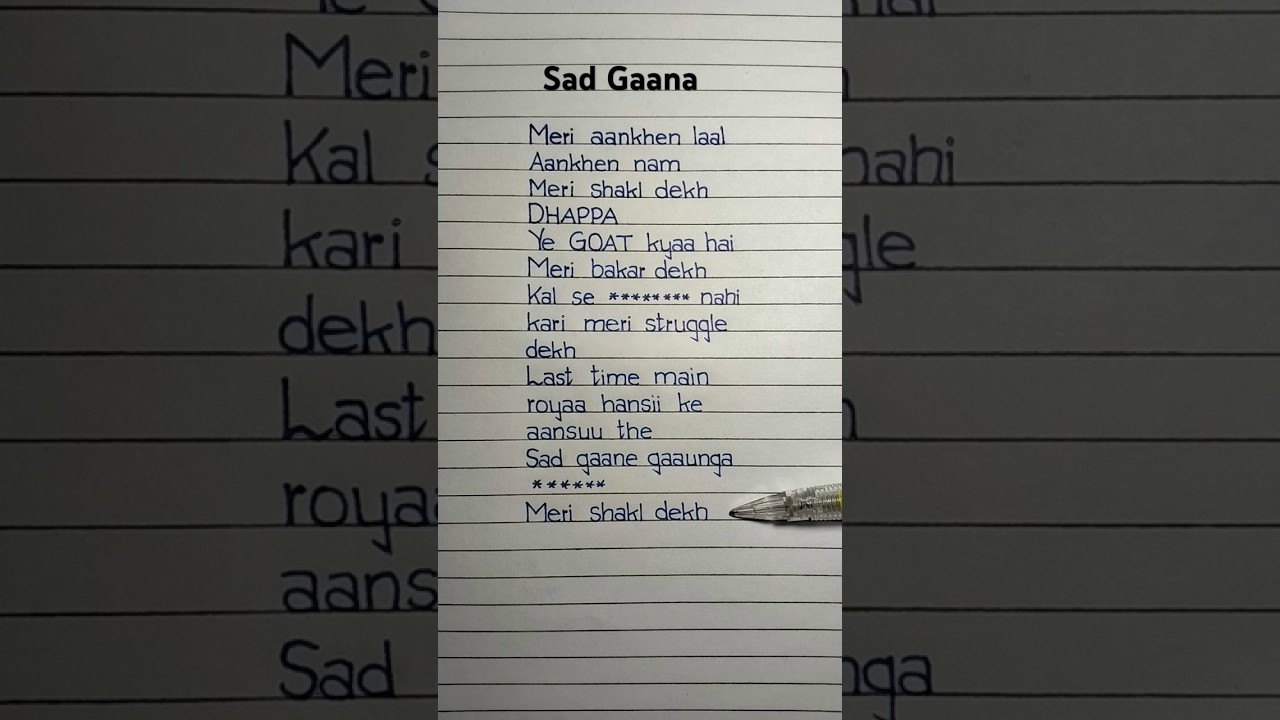 Sad Gaana
Meri aankhen laal
Aankhen nam
Meri shakl dekh
DHAPPA
Ye GOAT kyaa hai
Meri bakar dekh
Kal se ******** nahi
kari meri struggle
dekh
Last time main
royaa hansii ke
aansuu the
Sad gaane gaaunga
******
Meri shakl dekh